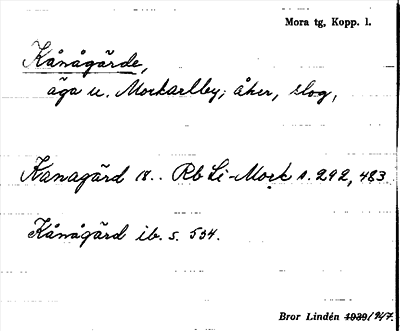 Mora tg, Kopp. l.
Kånågärde,
äga u. Morkarlby; åker, slog,
Kanagärd 18.. Rb Li-Mork s. 292, 483
Kånågård ib. s. 504.
Bror Lindén 1939/1947.